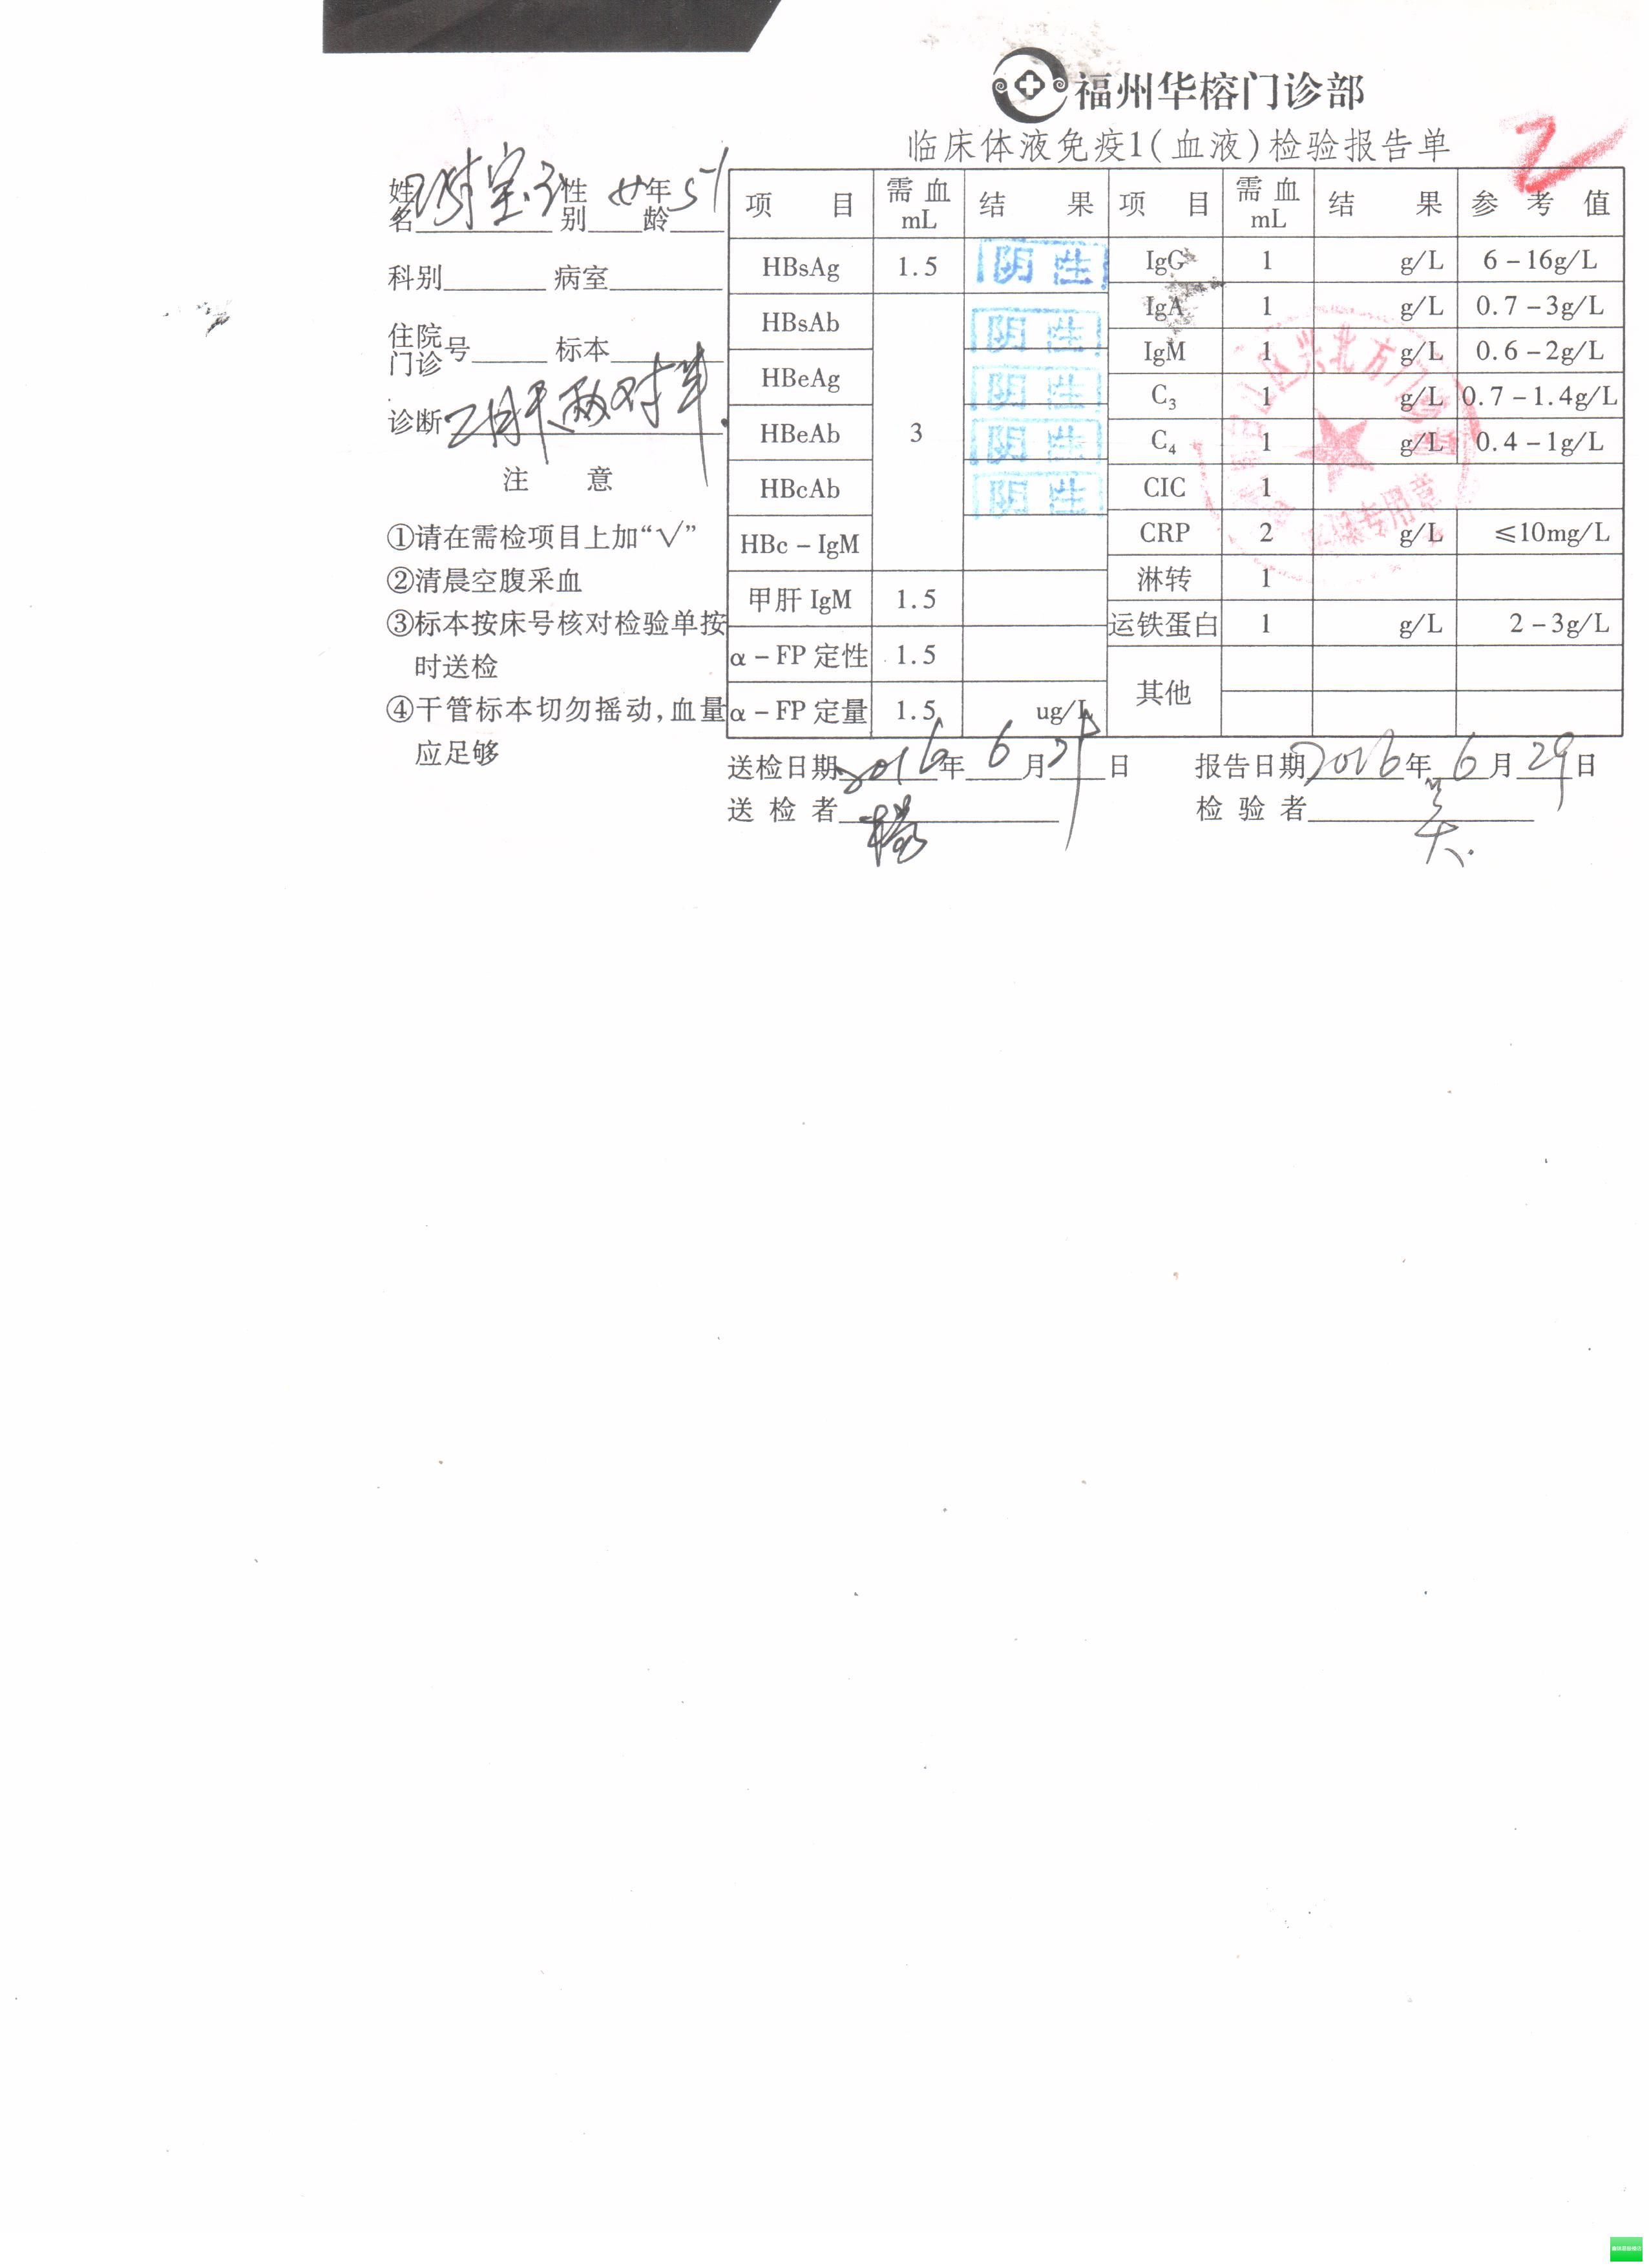 福州华榕门诊部
临床体液免疫1(血液)检验报告单
姓名 性别 女 年龄 51
科别 病室
住院门诊号 标本
诊断 乙肝 两对半
注 意
①请在需检项目上加“√”
②清晨空腹采血
③标本按床号核对检验单按
时送检
④干管标本切勿摇动,血量
应足够
项 目 需血mL 结 果 项 目 需血mL 结 果 参 考 值
HBsAg 1.5 阴性 IgG 1 g/L 6-16g/L
HBsAb 3 阴性 IgA 1 g/L 0.7-3g/L
HBeAg 阴性 IgM 1 g/L 0.6-2g/L
HBeAb 阴性 C3 1 g/L 0.7-1.4g/L
HBcAb 阴性 C4 1 g/L 0.4-1g/L
HBc-IgM CIC 1
甲肝 IgM 1.5 CRP 2 g/L ≤10mg/L
α-FP 定性 1.5 淋转 1
α-FP 定量 1.5 ug/L 运铁蛋白 1 g/L 2-3g/L
其他
送检日期 2016年 6 月 日 报告日期 2016年 6 月 29 日
送检者 检验者